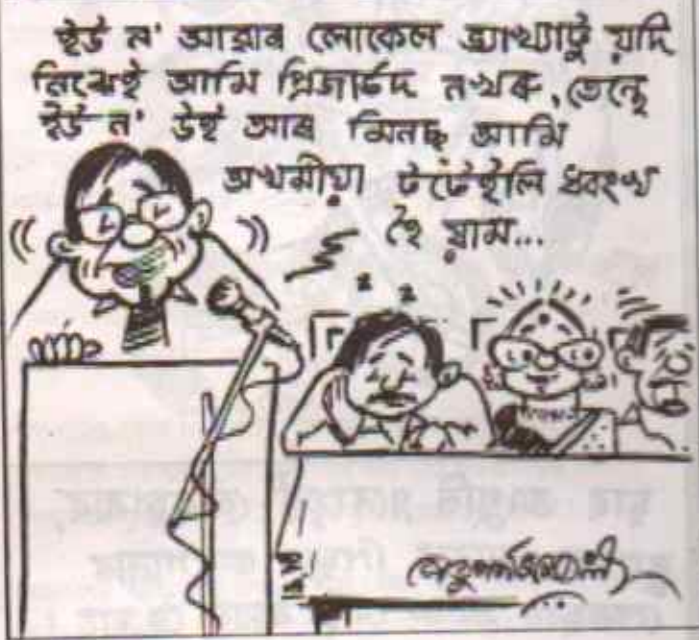 ইউ ন' আৱাৰ লোকেল ভ্যাখ্যাটু য়দি
নিঝেই আমি প্ৰিজাৰ্ভদ নখৰু, তেন্হে
ইউ ন' উই আৰ মিনছ আমি
অখমীয়া টটেইলি ধ্বংখ
হৈ য়াম...
z z